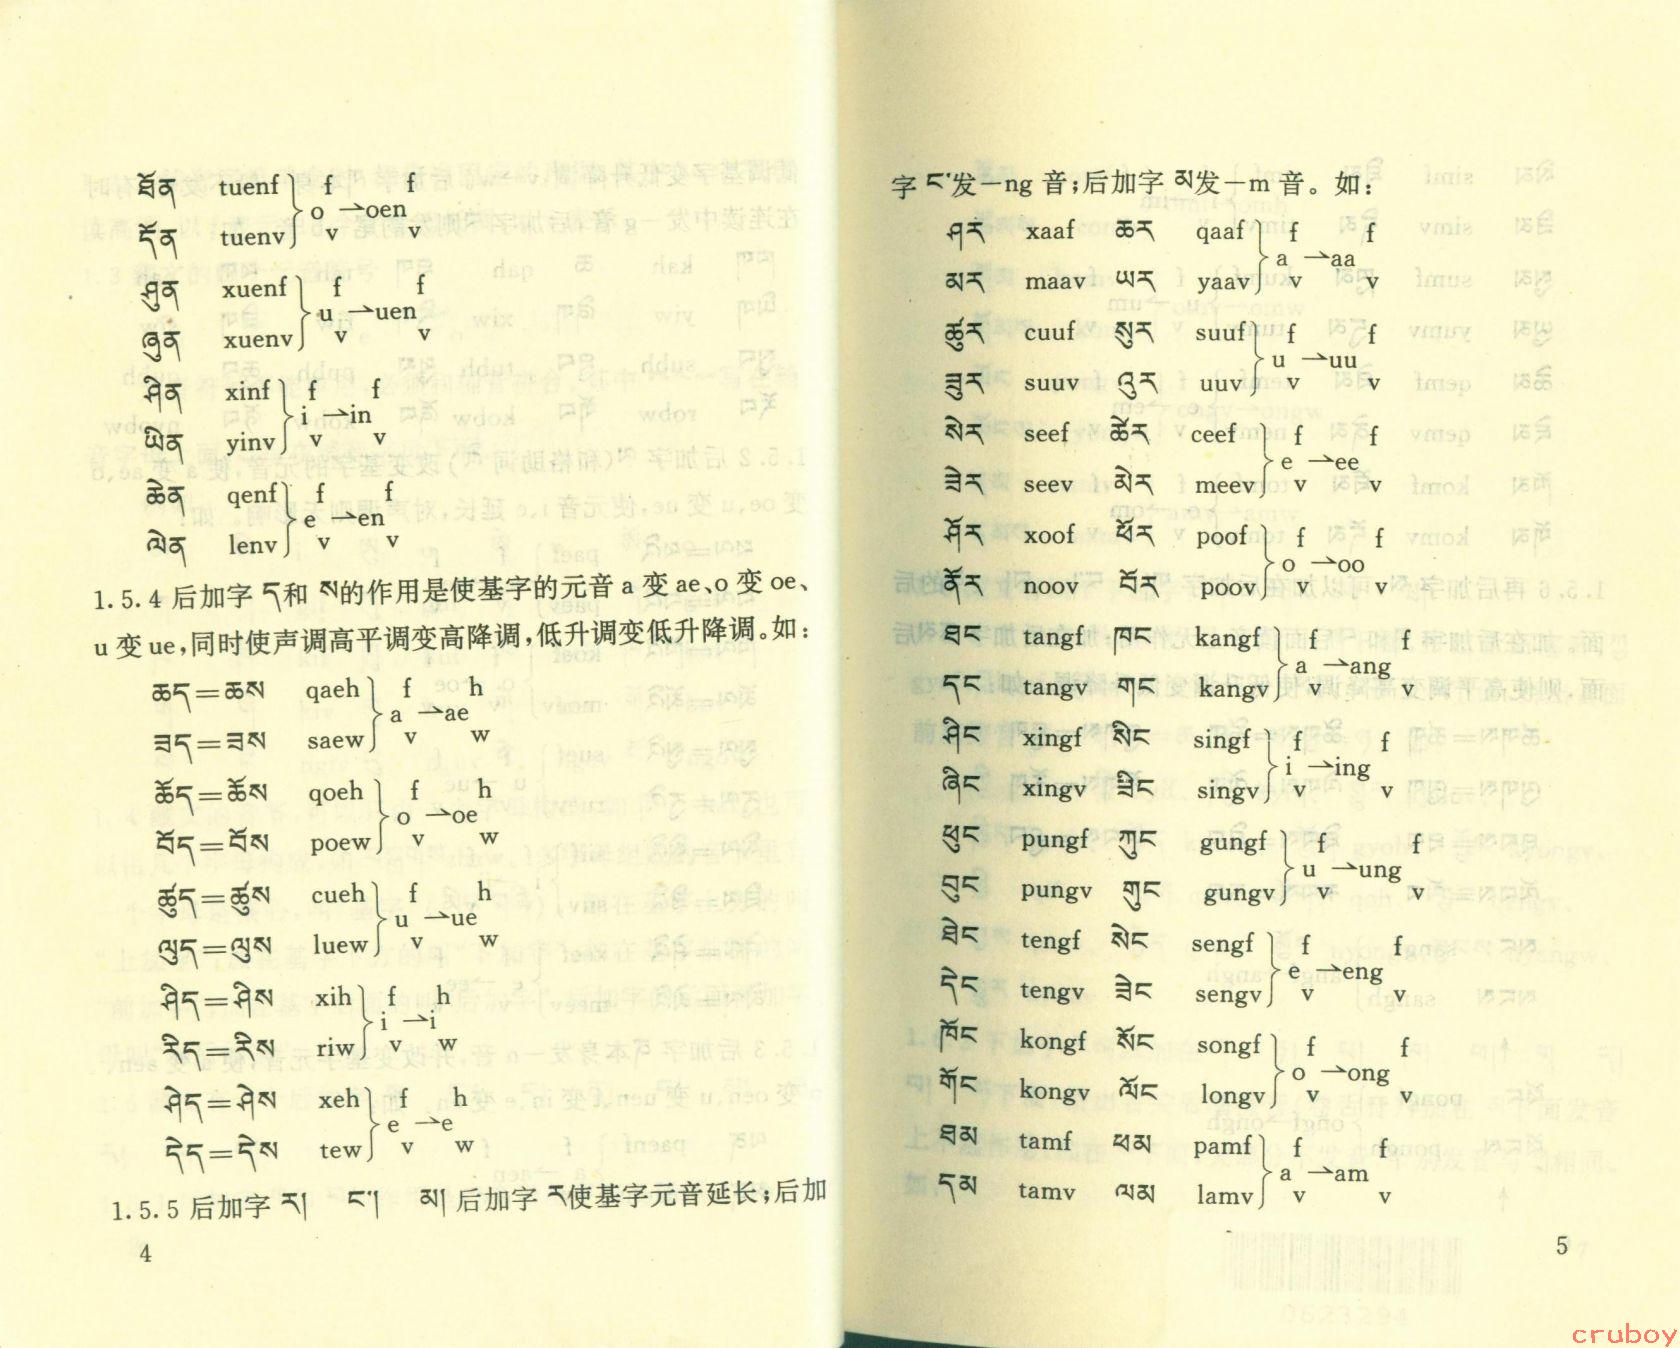 ཐོན tuenf f f
o →oen
དོན tuenv v v
ཤུན xuenf f f
u →uen
ཞུན xuenv v v
ཤིན xinf f f
i →in
ཡིན yinv v v
ཆེན qenf f f
e →en
ལེན lenv v v
1.5.4 后加字 ད和 ས的作用是使基字的元音 a 变 ae、o 变 oe、
u 变 ue,同时使声调高平调变高降调,低升调变低升降调。如:
ཆད=ཆས qaeh f h
a →ae
ཟད=ཟས saew v w
ཆོད=ཆོས qoeh f h
o →oe
བོད=བོས poew v w
ཚུད=ཚུས cueh f h
u →ue
ལུད=ལུས luew v w
ཤིད=ཤིས xih f h
i →i
རིད=རིས riw v w
ཤེད=ཤེས xeh f h
e →e
དེད=དེས tew v w
1.5.5 后加字 ར། ང་། མ། 后加字 ར使基字元音延长;后加
4
字 ང་发—ng 音;后加字 མ发—m 音。如:
ཤར xaaf ཆར qaaf f f
a →aa
མར maav ཡར yaav v v
ཚུར cuuf སུར suuf f f
u →uu
ཟུར suuv འུར uuv v v
སེར seef ཚེར ceef f f
e →ee
ཟེར seev མེར meev v v
ཤོར xoof ཕོར poof f f
o →oo
ནོར noov བོར poov v v
ཐང tangf ཁང kangf f f
a →ang
དང tangv གང kangv v v
ཤིང xingf སིང singf f f
i →ing
ཞིང xingv ཟིང singv v v
ཕུང pungf ཀུང gungf f f
u →ung
བུང pungv གུང gungv v v
ཐེང tengf སེང sengf f f
e →eng
དེང tengv ཟེང sengv v v
ཁོང kongf སོང songf f f
o →ong
གོང kongv ལོང longv v v
ཐམ tamf ཕམ pamf f f
a →am
དམ tamv ལམ lamv v v
5
cruboy